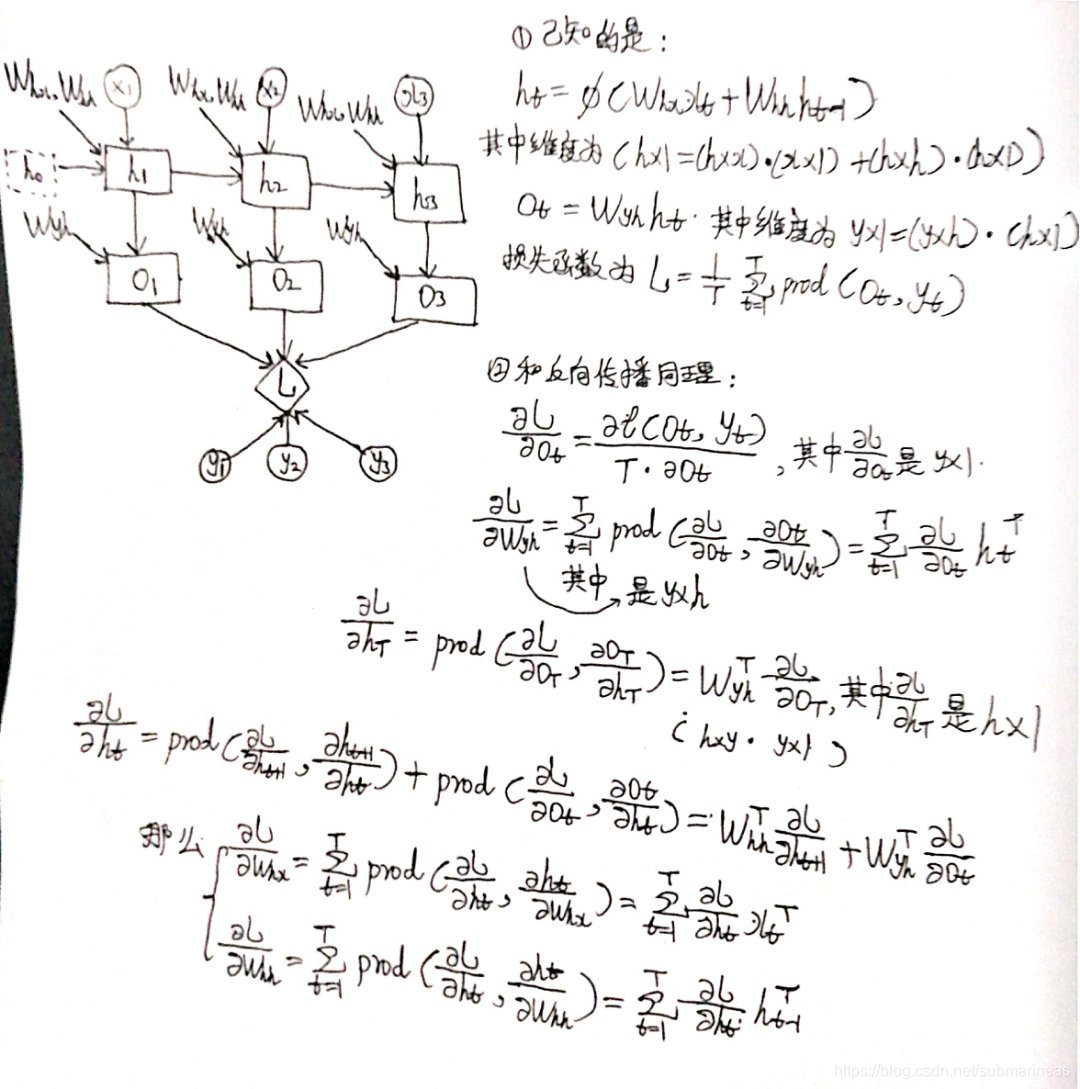 ① 已知的是：
Whx, Whh x1 Whx, Whh x2 Whx, Whh x3
ht = φ(Whx xt + Whh ht-1)
其中维度为 (h×1 = (h×x)·(x×1) + (h×h)·(h×1))
h0 h1 h2 h3
Ot = Wyh ht. 其中维度为 y×1 = (y×h)·(h×1)
Wyh Wyh Wyh
损失函数为 L = 1/T ∑_{t=1}^{T} prod(Ot, yt)
O1 O2 O3
L
y1 y2 y3
② 和反向传播同理：
∂L/∂Ot = ∂ℓ(Ot, yt)/(T·∂Ot), 其中 ∂L/∂Ot 是 y×1.
∂L/∂Wyh = ∑_{t=1}^{T} prod(∂L/∂Ot, ∂Ot/∂Wyh) = ∑_{t=1}^{T} ∂L/∂Ot ht^T
其中 是 y×h
∂L/∂hT = prod(∂L/∂OT, ∂OT/∂hT) = Wyh^T ∂L/∂OT, 其中 ∂L/∂hT 是 h×1
(h×y · y×1)
∂L/∂ht = prod(∂L/∂ht+1, ∂ht+1/∂ht) + prod(∂L/∂Ot, ∂Ot/∂ht) = Whh^T ∂L/∂ht+1 + Wyh^T ∂L/∂Ot
那么 ∂L/∂Whx = ∑_{t=1}^{T} prod(∂L/∂ht, ∂ht/∂Whx) = ∑_{t=1}^{T} ∂L/∂ht xt^T
∂L/∂Whh = ∑_{t=1}^{T} prod(∂L/∂ht, ∂ht/∂Whh) = ∑_{t=1}^{T} ∂L/∂ht ht-1^T
https://blog.csdn.net/submarineas